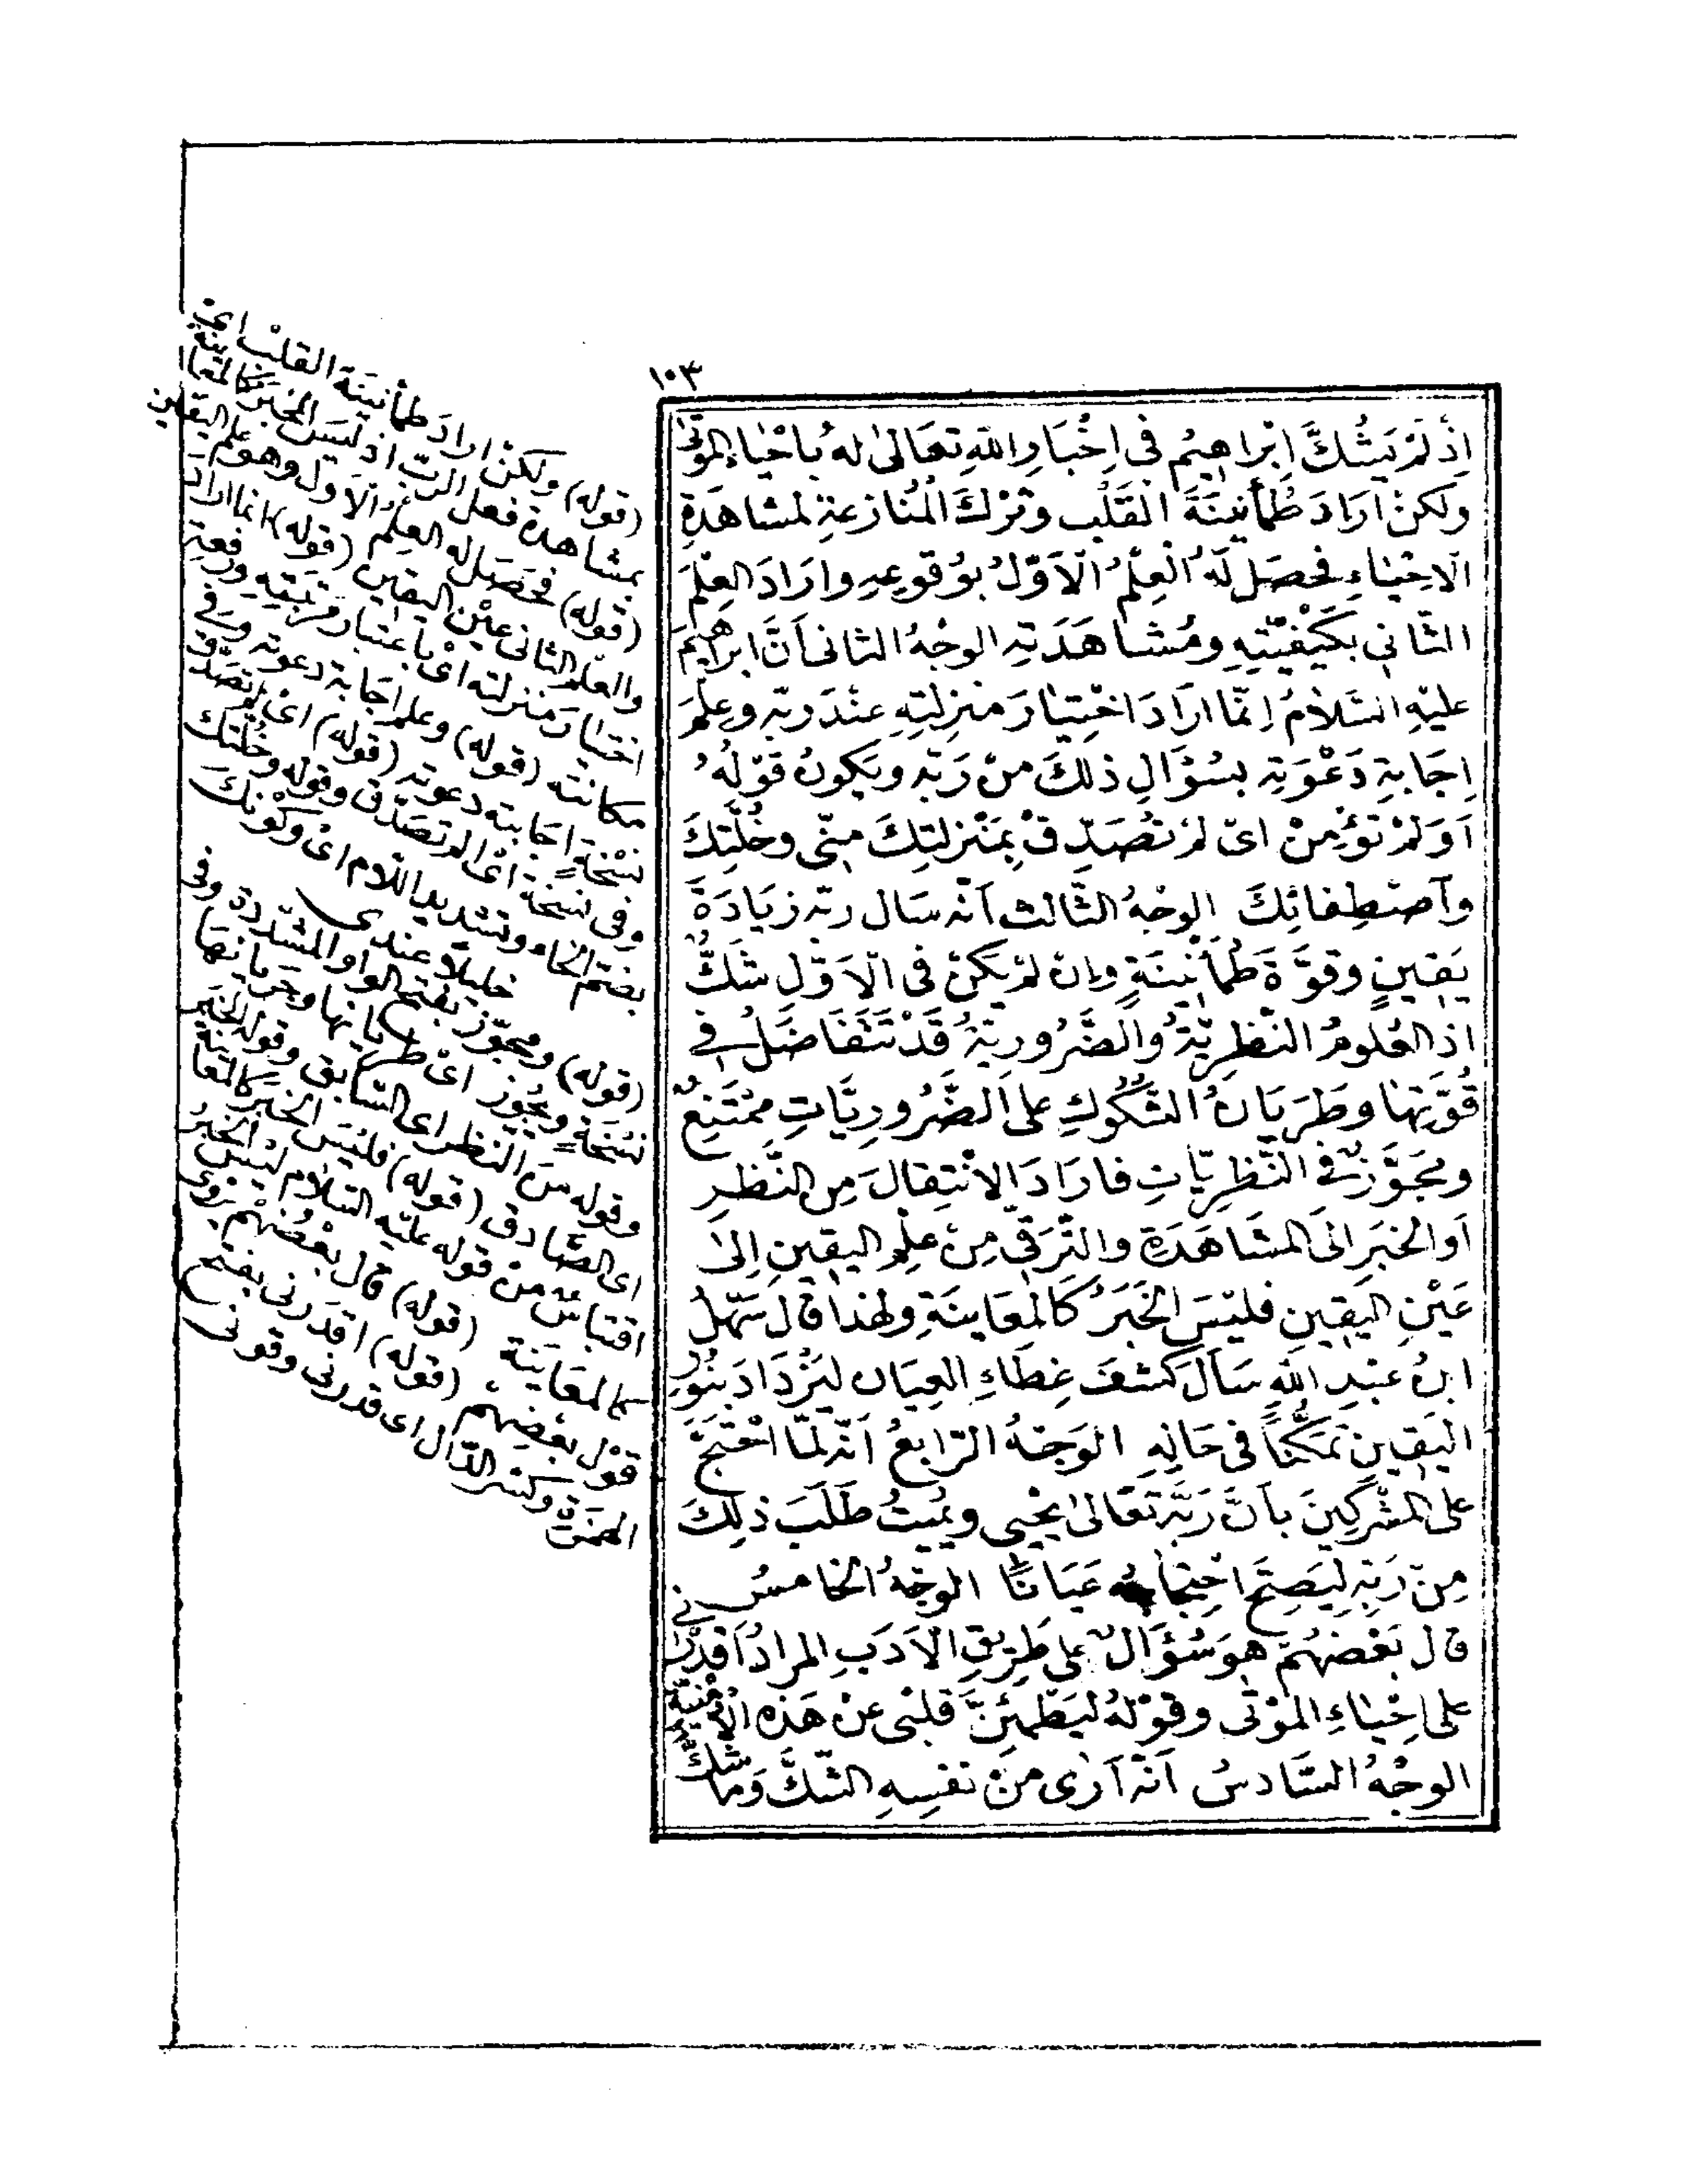 ١٠٣
اِذْ لَمْ يَشُكَّ اِبْرَاهِيمُ فى اِخْبَارِ اللهِ تعَالىٰ لهُ بِاحْيَاءِ الموْتٰى
ولكنْ ارَادَ طُمَأنينَةَ القَلْبِ وتَرْكَ المُنَازعَةِ لمشاهَدَةِ
الاحْيَاءِ فحصَل لَهُ العِلْمُ الاَوَّلُ بوُقوعِهِ وارَادَ العِلْمَ
الثَّانى بكَيْفِيَّتِهِ ومُشَاهَدَتِهِ الوجْهُ الثانى اَنَّ ابرَاهِيمَ
عليْهِ السَّلاَمُ اِنَّمَا ارَادَ اخْتِبَارَ منزِلَتِهِ عنْدَ ربِّه وعِلْمَ
اِجَابةِ دَعْوَتِه بسُؤَالِ ذلكَ منْ رَبّه ويَكونُ قوْلهُ
اَوَلمْ تؤمِنْ اىْ لمْ تُصَدِّقْ بِمَنْزِلتِكَ مِنّى وخُلَّتِكَ
وآصْطِفائِكَ الوجْهُ الثَّالث اَنّه سَال ربّه زيَادَةَ
يَقينٍ وقوَّةَ طُمَأنِينَةٍ وان لمْ يَكنْ فى الاَوَّلِ شَكٌّ
اذ العُلومُ النَّظرِيَّةُ والضَّرُوريّةُ قَدْ تَتَفَاضَلُ فى
قُوَّتِهَا وطَرَيَانُ الشُّكُوكِ على الضَّرُورِيَّاتِ ممْتَنِعٌ
ومُجَوَّزٌ فى النَّظرِيّاتِ فارَادَ الانْتِقالَ مِن النَّظَرِ
اَو الخبَر الىَ المشَاهَدَةِ والتَّرَقّى مِنْ علْمِ اليقينِ اِلىٰ
عَيْنِ اليَقينِ فليْسَ الخَبَرُ كَالمُعَاينَةِ ولهذا قَال سَهْلُ
ابنُ عبْدِ اللهِ سَاَلَ كشْفَ غِطَاءِ العِيَان ليَزْدَادَ بنُورِ
اليَقينِ تمَكُّنًا فى حَالِهِ الوَجْهُ الرَّابعُ اَنّه لمَّا احْتَجَّ
على المشْركينَ بانَّ رَبَّه تَعَالىٰ يُحْيى ويُميتُ طَلَبَ ذلِكَ
مِنْ رَبّهِ ليَصِحَّ احْتجَاجُه عَيَانًا الوجْهُ الخَامسُ
قال بَعْضهُمْ هوَ سُؤَالٌ على طَريقِ الاَدَبِ المرادُ اَقدِرْنى
على اِحْيَاءِ المَوْتٰى وقوْلهُ ليَطمَئِنَّ قلبْى عنْ هَذه الاُمْنِيَّةِ
الوجْهُ السَّادسُ اَنّه اَرَى منْ نفسِهِ الشَّكَّ وَما شَكَّ
(قوله) ولكنْ ارادَ طمأنينَةَ القلْب اىْ
بمشاهدة فعل الربّ اذ ليسَ الخبَر كالمعاينة
(قوله) فحَصَل له العِلم الاَول وهو علم اليقين
والعلم الثانى عيْن اليقين (قوله) انما ارادَ
اختبارَ منزلته اىْ باعتبار مرتبته ورفعة
مكانته (قوله) وعلم اجابة دعوته وفى
نسْخةٍ اجابته دعوته (قوله) اىْ لم تصَدّق
وفى نسخة اىْ الم تصَدّق وقوله وخُلّتك
بضم الخاء وتشديد اللام اىْ وكوْنك
خليلاً عندى
(قوله) ومجوّز بفتح الواو المشدّدة وفى
نسْخةٍ ويجُوز اىْ طريانها وجَريانها
وقوله من النظر اى السَّابق وقوله الخبَر
اى الصَّادق (قوله) فليْسَ الخبر كالمعاينة
اقتباسٌ منْ قوله عليْه السَّلام ليْسَ الخبرُ
كالمعَاينة (قوله) قال بعْضهُمْ يروى
قوْل بعْضِهمْ (قوله) اقدَرنى بفتح
الهمَزة وكسْر الدّال اى قدرنى وقونى